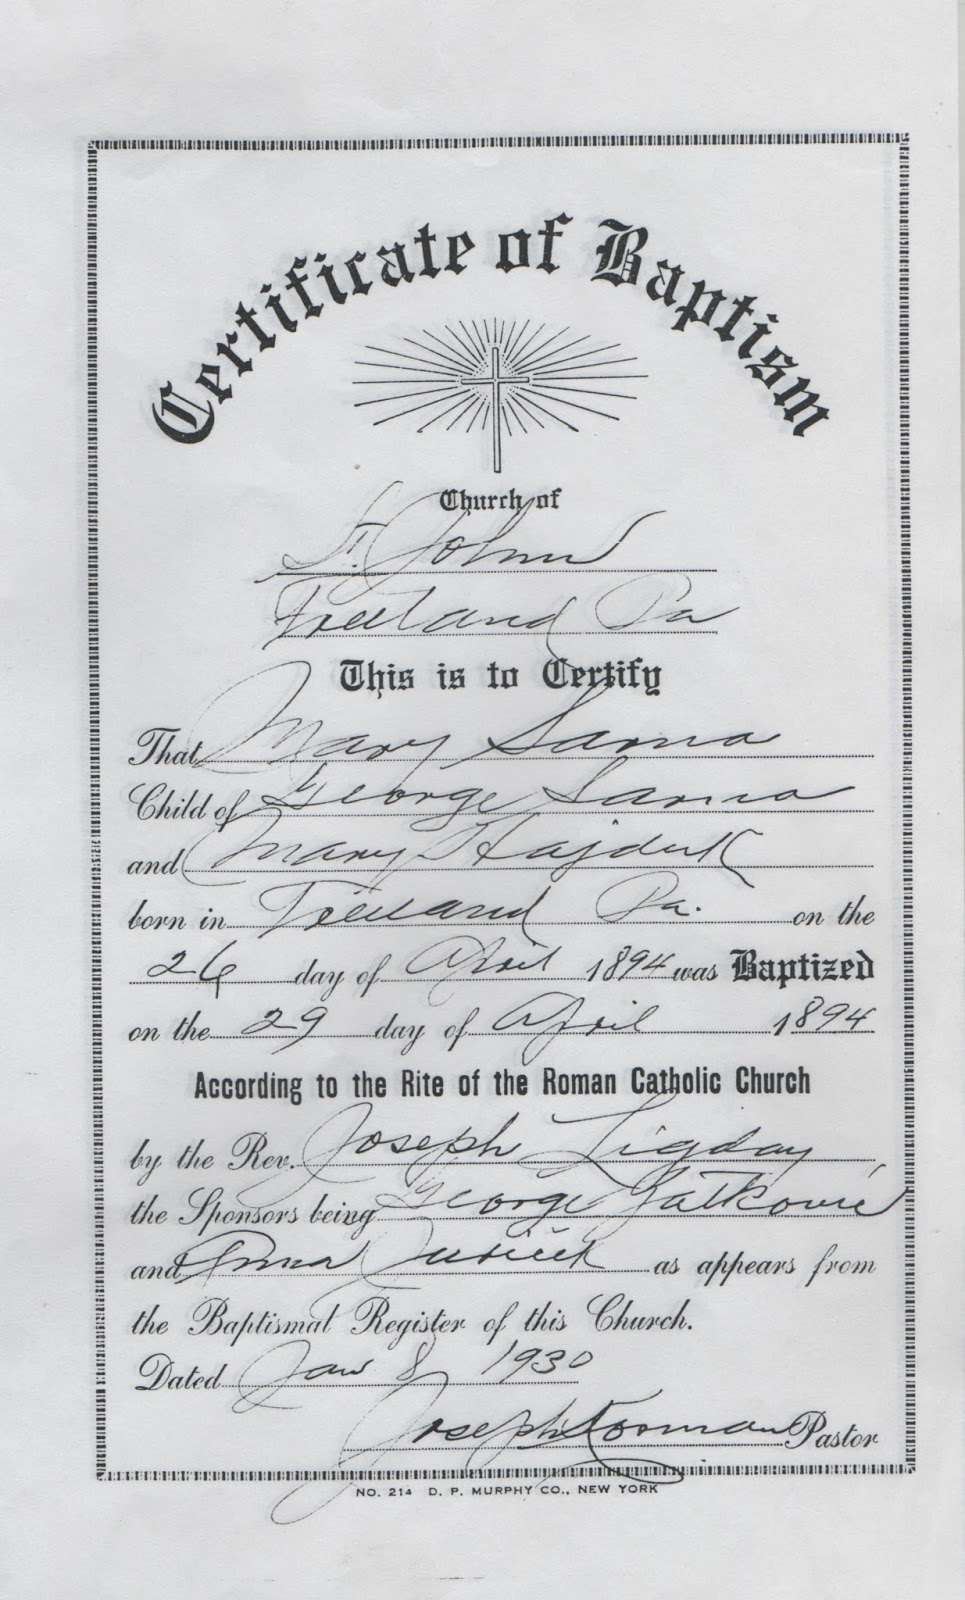 Certificate of Baptism
Church of
St. John
Freeland Pa
This is to Certify
That Mary Sarna
Child of George Sarna
and Mary Hajduk
born in Freeland Pa. on the
26 day of April 1894 was Baptized
on the 29 day of April 1894
According to the Rite of the Roman Catholic Church
by the Rev. Joseph Ligday
the Sponsors being George
and Anna as appears from
the Baptismal Register of this Church.
Dated Jan 8 1930
Joseph Korman Pastor
NO. 214 D. P. MURPHY CO., NEW YORK